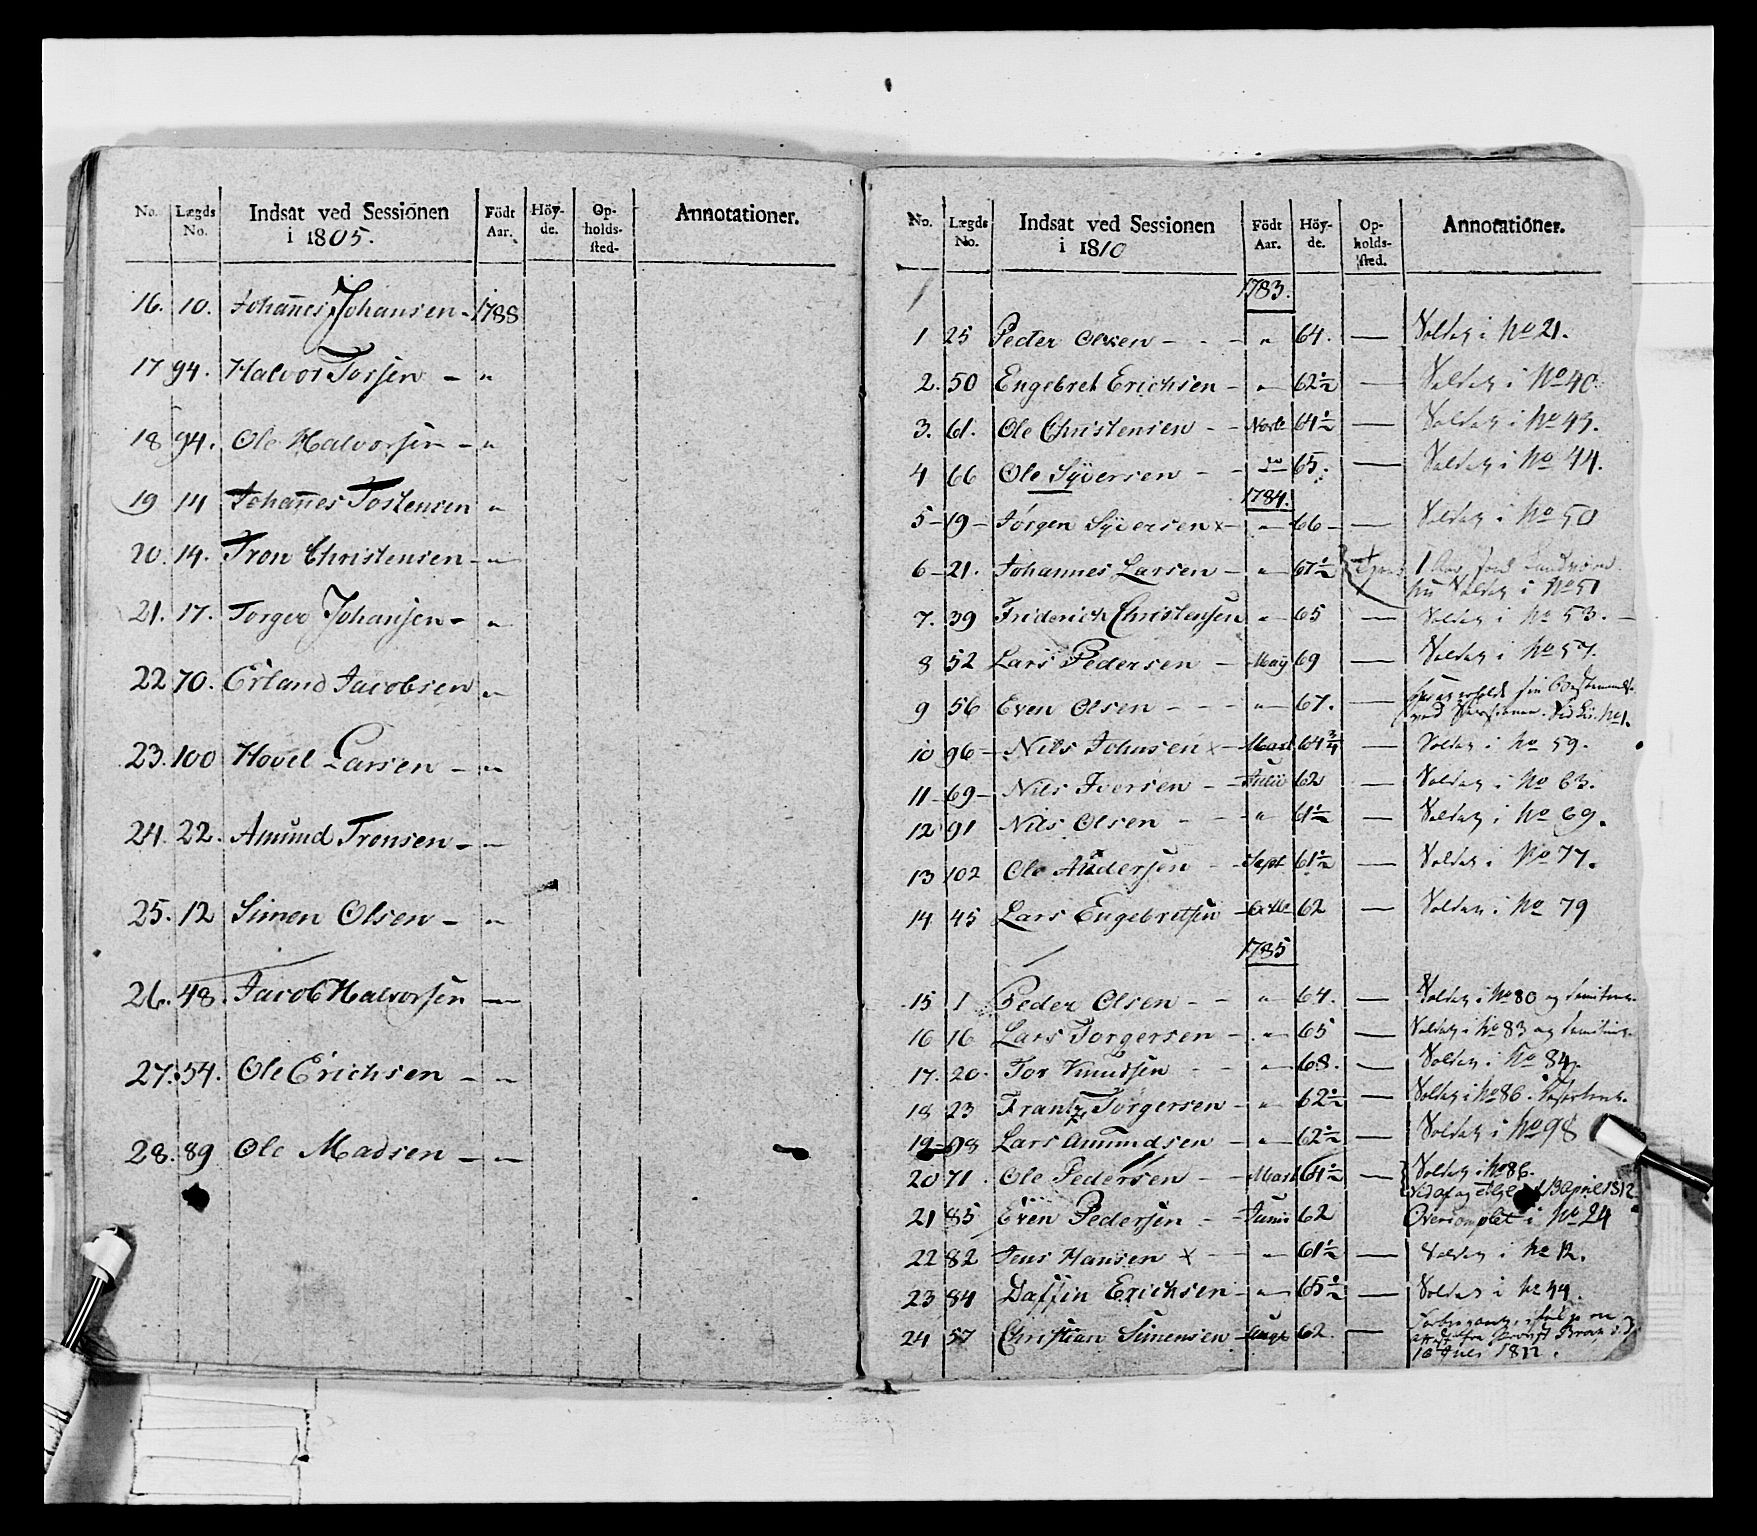 No. Lægds No. Indsat ved Sessionen i 1805. Födt Aar. Höy-de. Op-holds-sted. Annotationer.
16. 10. Johannes Johansen - 1788
17 94. Halvor Torsen - "
18 94. Ole Halvorsen - "
19 14 Johannes Tostensen "
20. 14. Tron Christensen - "
21. 17. Torger Johansen - "
22 70. Erland Jacobsen "
23. 100 Hovel Larsen - "
24. 22. Amund Tronsen - -
25. 12 Simen Olsen - "
26. 48. Jacob Halvorsen -
27. 54. Ole Erichsen - -
28. 89 Ole Madsen - -
No. Lægds No. Indsat ved Sessionen i 1810 Födt Aar. Höy-de. Op-holds-sted. Annotationer.
1783.
1 25 Peder Olsen - - - " 64. — Soldat i No 21.
2. 50 Engebret Erichsen - " 62½ — Soldat i No 40
3. 61. Ole Christensen - - 64½ — Soldat i No 43.
4 66 Ole Syversen - - do 65. — Soldat i No 44.
1784.
5 - 19 - Jörgen Syversen x - " 66 - — Soldat i No 50
6 - 21. Johannes Larsen - " 67½ 1 Aar
nu Soldat i No 51
7. 39 Friderich Christensen " 65 — Soldat i No 53. -
8 52 Lars Pedersen - May 69 — Soldat i No 57.
9 56 Even Olsen - - - " 67. —
No 1.
10 96 - Nils Johnsen x - Mart 64¾ — Soldat i No 59.
11 - 69 - Nils Iversen - - Julii 62 — Soldat i No 63.
12 91 Nils Olsen - - " 61½ — Soldat i No 69.
13 102 Ole Andersen - - Sept 61½ — Soldat i No 77.
14 45 Lars Engebretsen - 62 — Soldat i No 79
1785
15 1 Peder Olsen - - " 64. — Soldat i No 80 og
16 16 Lars Torgersen - " 65 — Soldat i No 83 og
17. 20. Tor Knudsen - - " 68. — Soldat i No 84.
18 23 Frantz Torgersen - " 62½ — Soldat i No 86.
19 - 98 Lars Amundsen - " 62½ — Soldat i No 98
20 71. Ole Pedersen - - Mart 61½ — Soldat i No 86.
13 April 1812
21 85 Even Pedersen - - Junii 62 Overcomplet i No 24
22 82 Jens Hansen x - - " 61½ — Soldat i No 12.
23 84 Daffin Erichsen - " 65½ — Soldat i No 44.
24 57 Christian Simensen - Augt 62. —
1812.